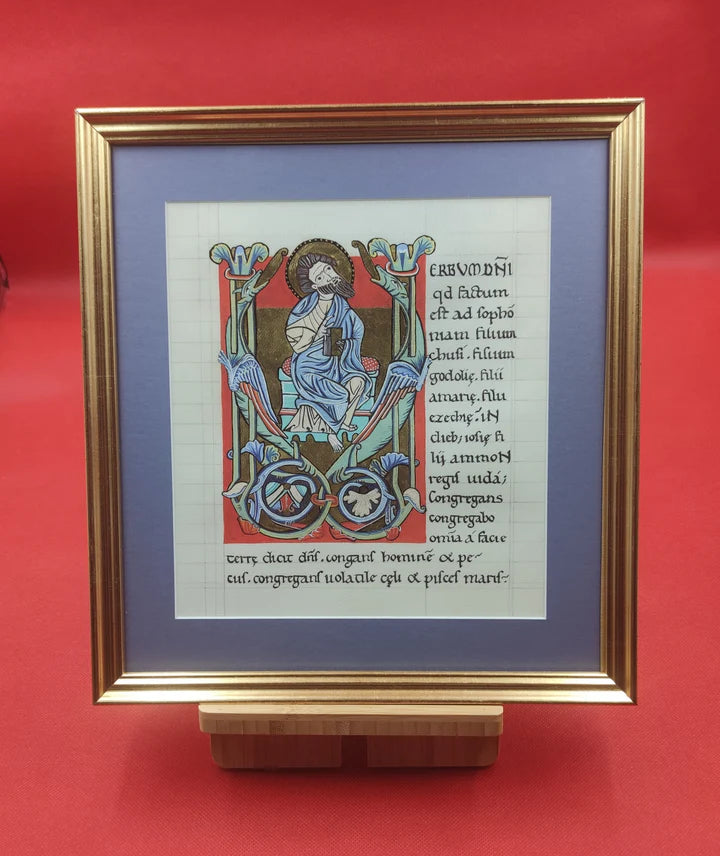 ERBVM DN̄I
qd factum
est ad sophō
niam filium
chusi. filium
godolię. filii
amarię. filii
ezechię. IN
dieb; iosię fi
lij ammoN
regis iudá;
Congregans
congregabo
om̄ia a facie
terrę dicit dn̄s. congans hominē & pe-
cus. congregans uolatile cęli & pisces maris